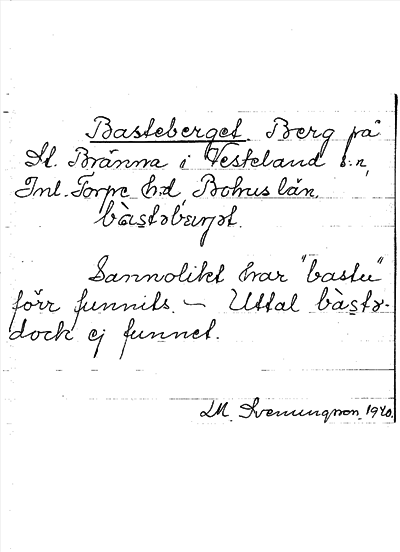 Basteberget. Berg på
St. Bränna i Vesteland s:n,
Inl. Torpe h:d, Bohus län.
bàstəbærjət.
Sannolikt har "bastu"
förr funnits. — Uttal bàstə-
dock ej funnet.
M. Svenungsson. 1940.